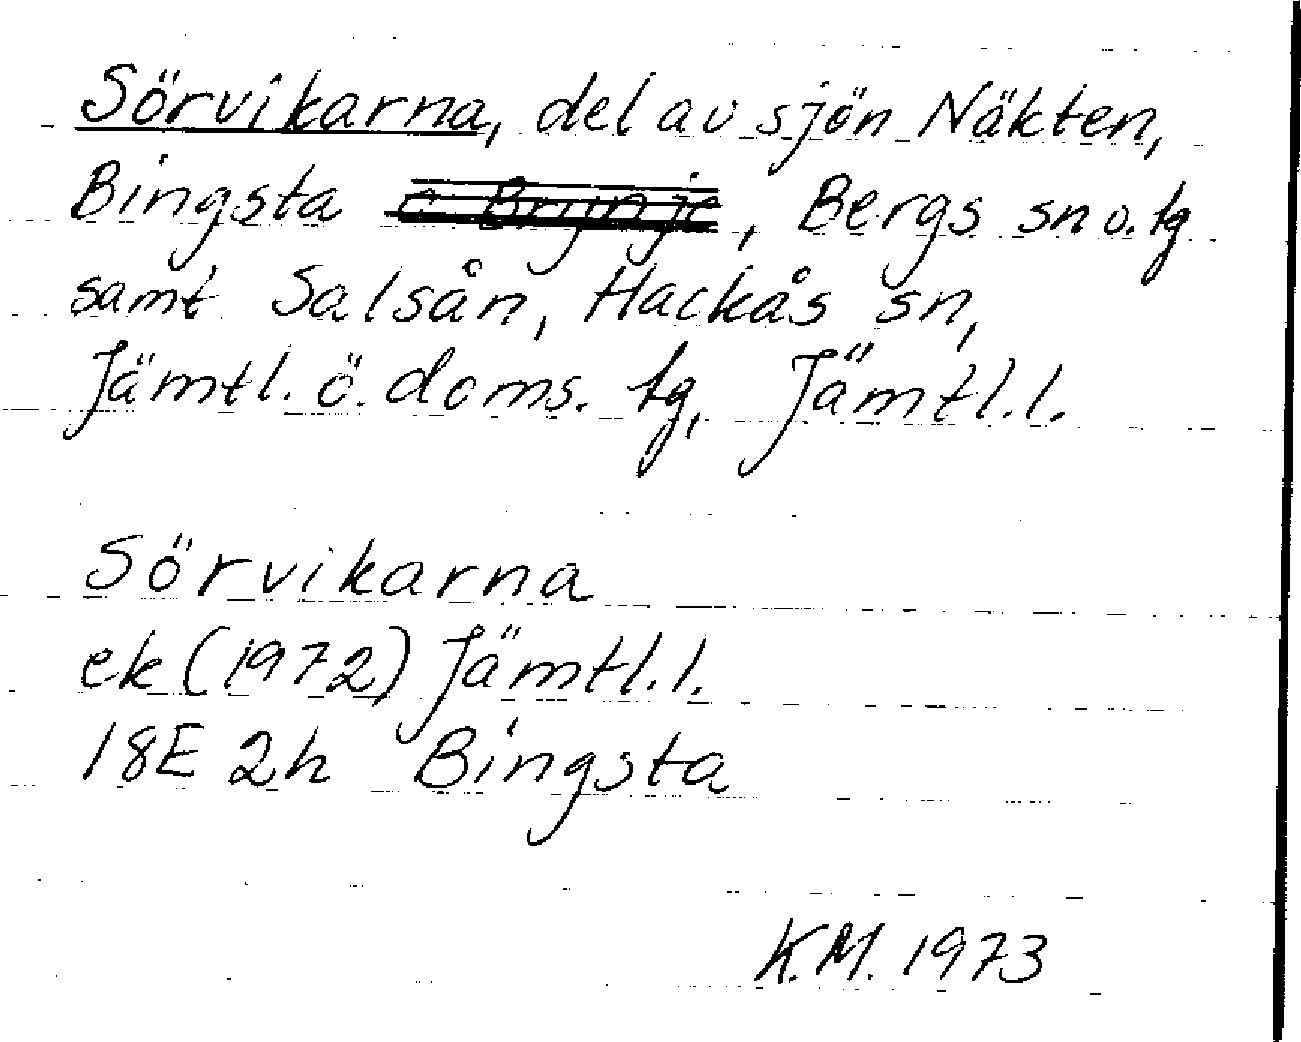 Sörvikarna, del av sjön Näkten,
Bingsta o Brynje, Bergs sn o. tg
samt Salsån, Hackås sn,
Jämtl. ö. doms. tg, Jämtl. l.
Sörvikarna
ek (1972) Jämtl. l.
18E 2h Bingsta
K.M. 1973